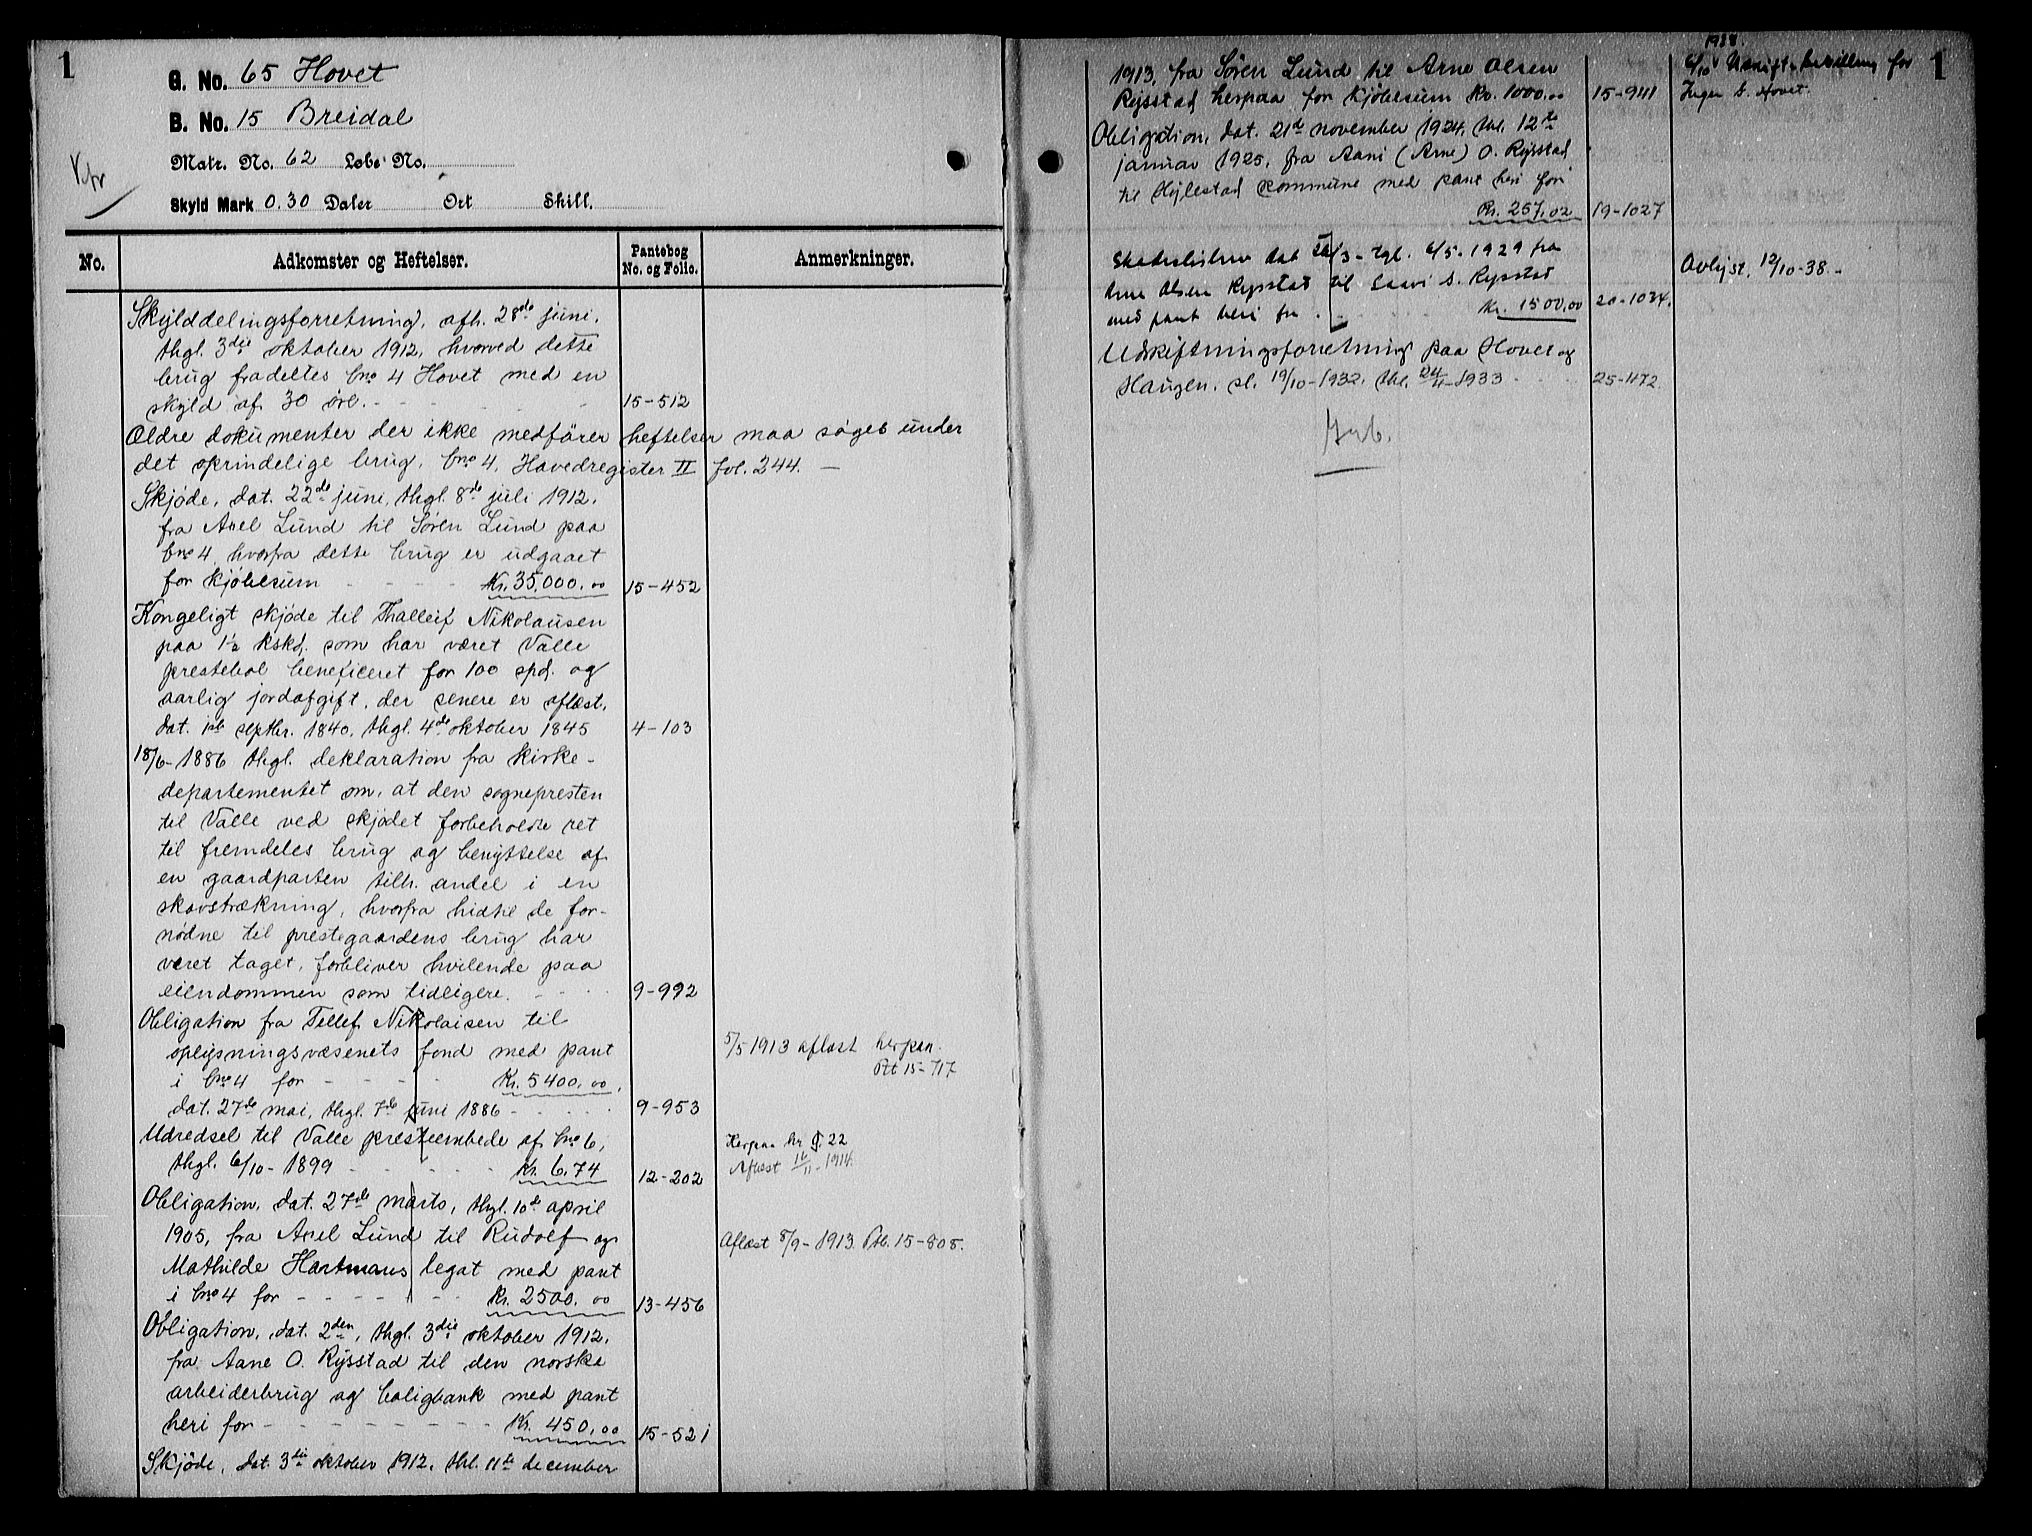 1
G. No. 65 Hovet
B. No. 15 Breidal
Matr. No. 62 Løbe No.
Skyld Mark 0.30 Daler Ort Skill.
No. Adkomster og Heftelser. Pantebog No. og Folio. Anmerkninger.
Skylddelingsforretning, afh. 28de juni,
thgl. 3die oktober 1912, hvorved dette
brug fradeltes bno 4 Hovet med en
skyld af 30 øre. - - - - 15-512
Ældre dokumenter der ikke medfører heftelser maa søges under
det oprindelige brug, bno 4, Hovedregister II fol. 244. -
Skjøde, dat. 22de juni, thgl. 8de juli 1912,
fra Axel Lund til Søren Lund paa
bno 4 hvorfra dette brug er udgaaet
for kjøbesum - - - - Kr. 35,000.00 15-452
Kongeligt skjøde til Thalleif Nikolausen
paa 1½ kskd. som har været Valle
prestebol beneficeret for 100 spd. og
aarlig jordafgift, der senere er aflæst,
dat. 1ste septbr. 1840, thgl. 4de oktober 1845 4-103
18/6-1886 thgl. deklaration fra kirke-
departementet om, at den sognepresten
til Valle ved skjødet forbeholdte ret
til fremdeles brug og benyttelse af
en gaardparten tilh. andel i en
skovstrækning, hvorfra hidtil de for-
nødne til prestegaardens brug har
været taget, forbliver hvilende paa
eiendommen som tidligere. - - - 9-992
Obligation fra Tellef Nikolaisen til
oplysningsvæsenets fond med pant
i bno 4 for - - - - Kr. 5400.00,
dat. 27de mai, thgl. 7de juni 1886 - - - - 9-953
5/5 1913 aflæst herpaa.
Ptt 15-717
Udredsel til Valle presteembede af bno 6,
thgl. 6/10-1899 - - - - Kr. 6.74 12-202
Herpaa kr 0.22
Aflæst 16/11-1914
Obligation, dat. 27de marts, thgl. 10de april
1905, fra Axel Lund til Rudolf og
Mathilde Hartmans legat med pant
i bno 4 for - - - - Kr. 2500.00 13-456
Aflæst 8/9-1913 Ptb. 15-808.
Obligation, dat. 2den, thgl. 3die oktober 1912,
fra Aane O. Rysstad til den norske
arbeiderbrug og boligbank med pant
heri for - - - - Kr. 450.00 15-521
Skjøde, dat. 3die oktober 1912, thl. 11te december
1913, fra Søren Lund til Arne Olsen
Rysstad herpaa for kjøbesum Kr. 1000.00 15-941
Obligation, dat. 21de november 1924, thl. 12te
januar 1925, fra Aani (Arne) O. Rysstad
til Hylestad kommune med pant heri for
Kr. 257.02 19-1027
Skadeslösbrev dat /3-tgl. 6/5-1929 fra
Arne Olsen Rysstad til S. Rysstad
med pant heri for . . . . Kr. 1500.00 20-1034.
Avlyst, 12/10-38.-
Udskiftningsforretning paa Hovet og
Haugen, sl. 19/10-1932, thl. 24/11-1933 - - - 25-1172.
1938.
6/10 Uskift.bevilling for
Inger S. Hovet.
1